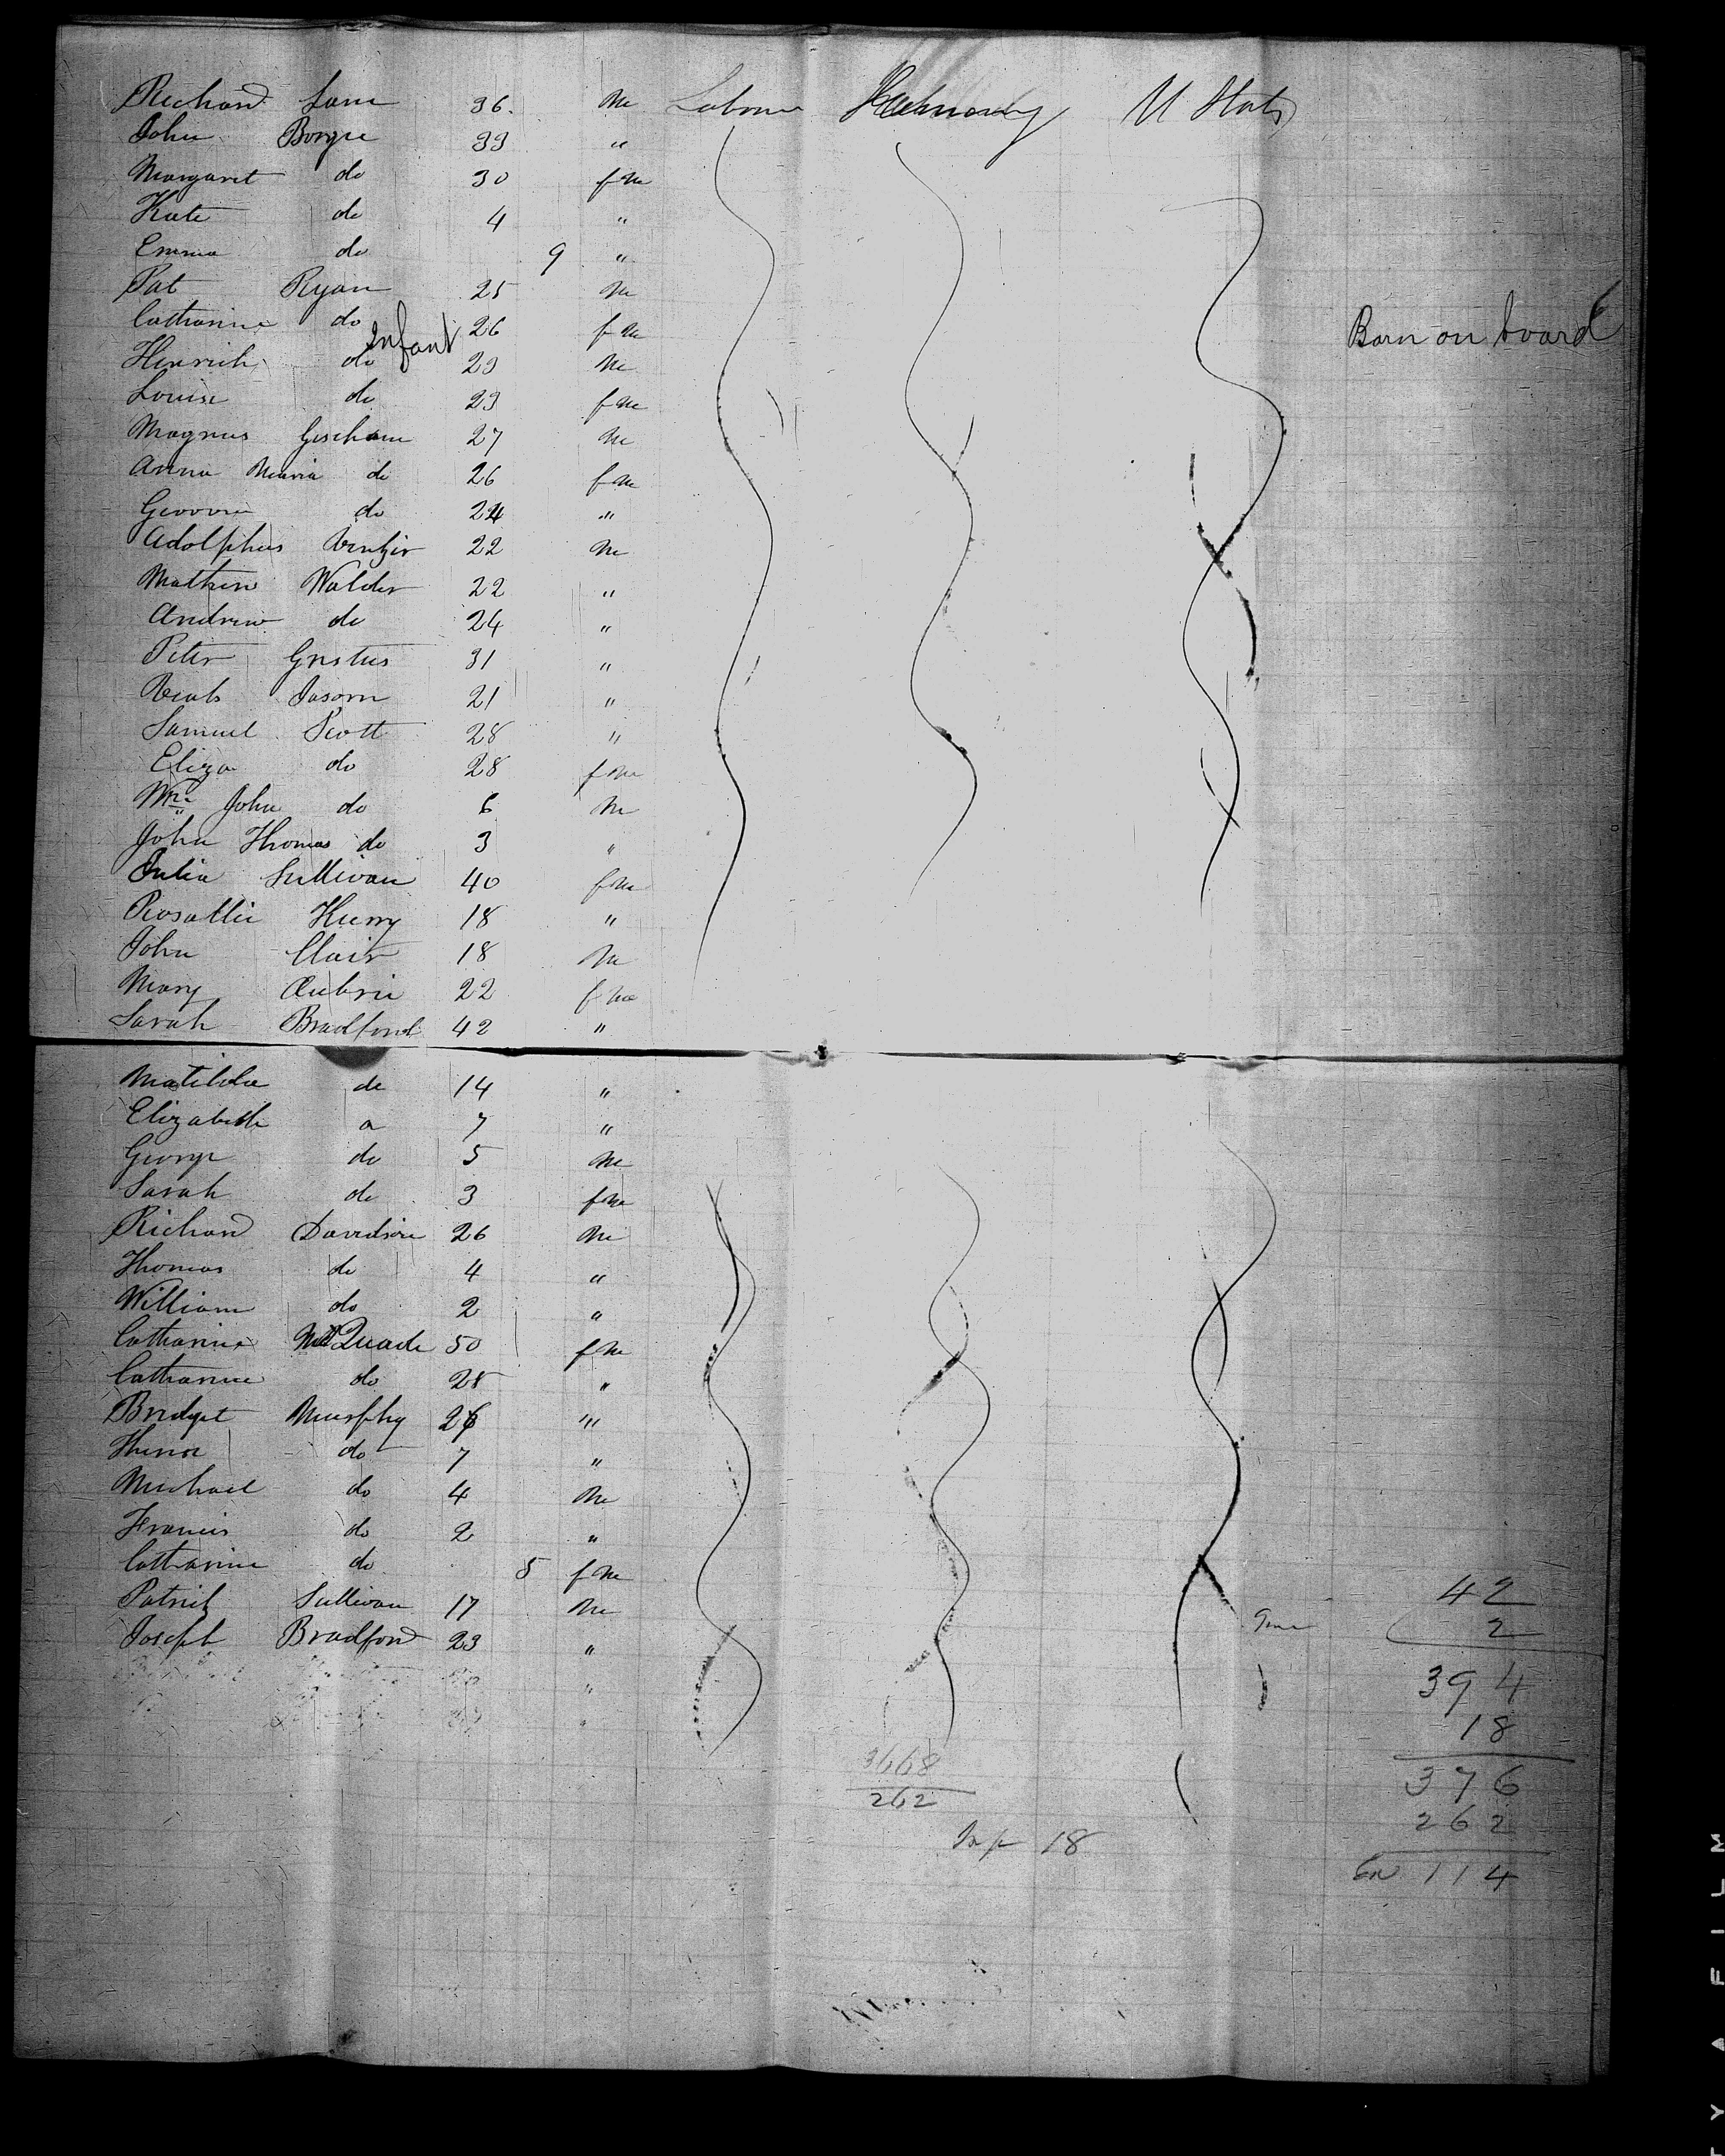 Richard Lane 36. m Labour Germany U States
John Borgre 33 "
Margaret do 30 fm
Kate do 4 "
Emma do 9 "
Pat Ryan 25 m
Catharine do 26 fm
Infant Born on board
Henrich do 23 m
Louise do 23 fm
Magnus 27 m
Anna Maria do 26 fm
do 24 "
Adolphus 22 m
Mathew Walder 22 "
Andrew do 24 "
Peter Gristus 31 "
21 "
Samuel Scott 28 "
Eliza do 28 fm
Wm John do 6 m
John Thomas do 3 "
Julia Sullivan 40 fm
Rosallie 18 "
John Clair 18 m
Mary Aubrie 22 fm
Sarah Bradford 42 "
Matilda do 14 "
Elizabeth 7 "
George do 5 m
Sarah do 3 fm
Richard Davidson 26 m
Thomas do 4 "
William do 2 "
Catharine McQuade 50 fm
Catharine do 28 "
Bridget Murphy 26 "
do 7 "
Michael do 4 m
Francis do 2 "
Catharine do 5 fm
Patrick Sullivan 17 m
Joseph Bradford 23 "
42
2
394
18
376
262
114
3668
262
Inf 18